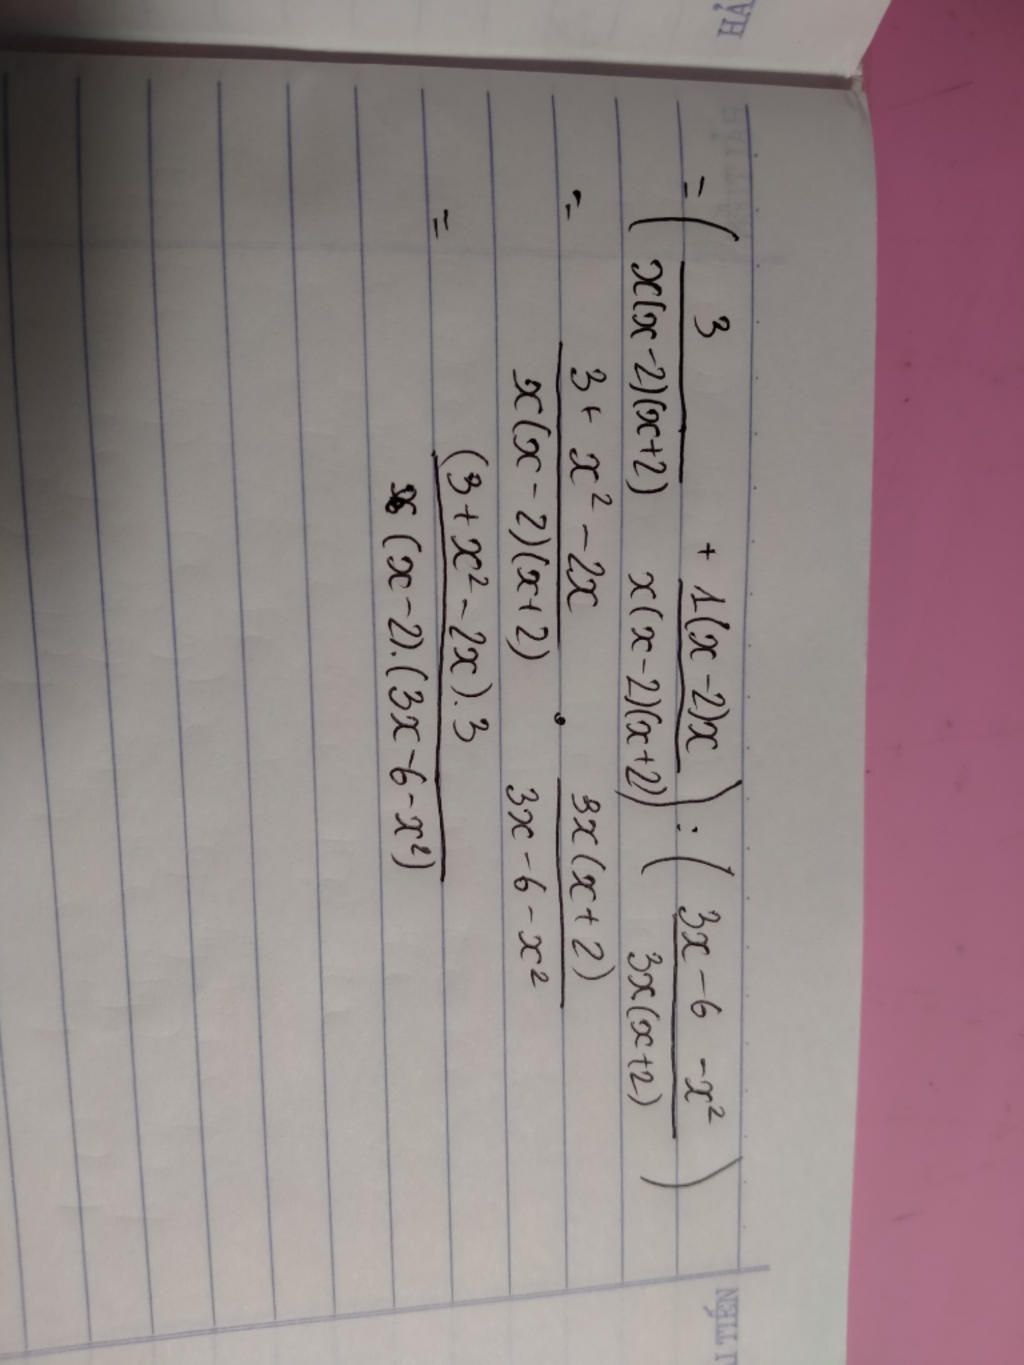 = ( 3 / x(x-2)(x+2) + 1(x-2)x / x(x-2)(x+2) ) : ( 3x - 6 - x² / 3x(x+2) )
= 3 + x² - 2x / x(x-2)(x+2) . 3x(x+2) / 3x - 6 - x²
= (3 + x² - 2x).3 / x(x-2).(3x-6-x²)